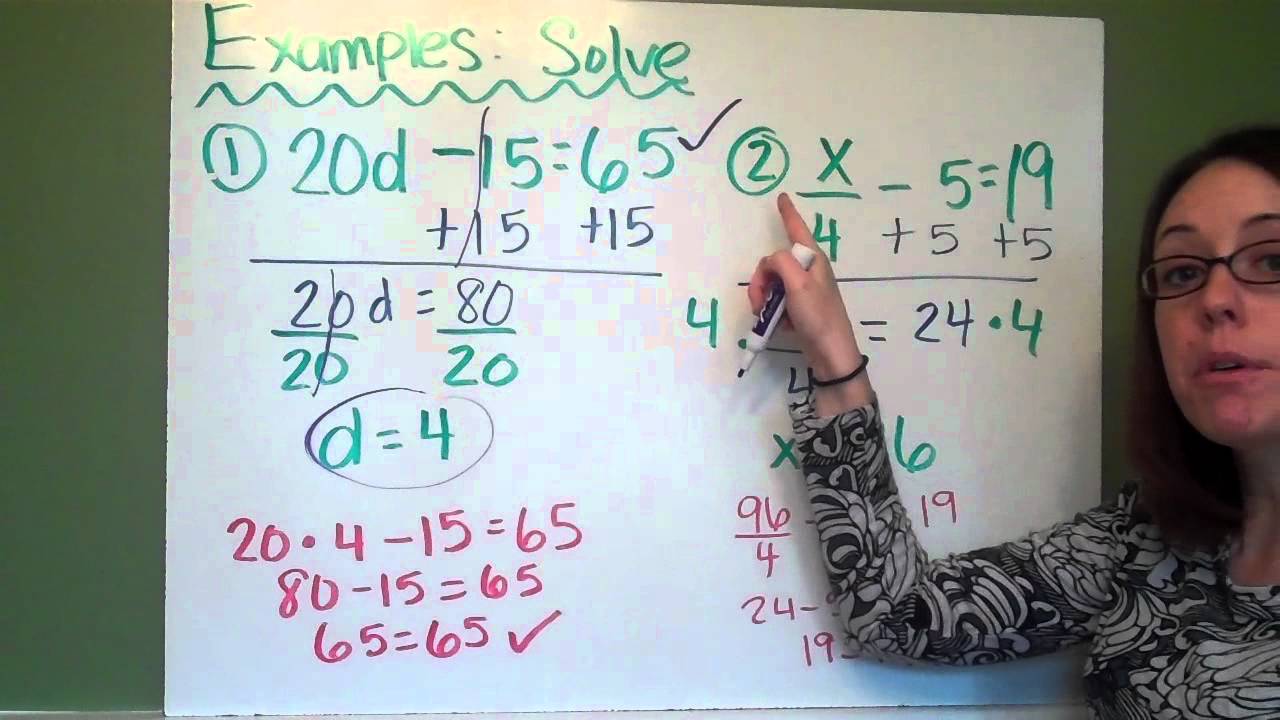 Examples: Solve
① 20d - 15 = 65 ✓
+15 +15
20d = 80
20 20
d = 4
20 · 4 - 15 = 65
80 - 15 = 65
65 = 65 ✓
② x - 5 = 19
4 + 5 + 5
4 · = 24 · 4
4
x 6
96 - 19
4
24 -
19